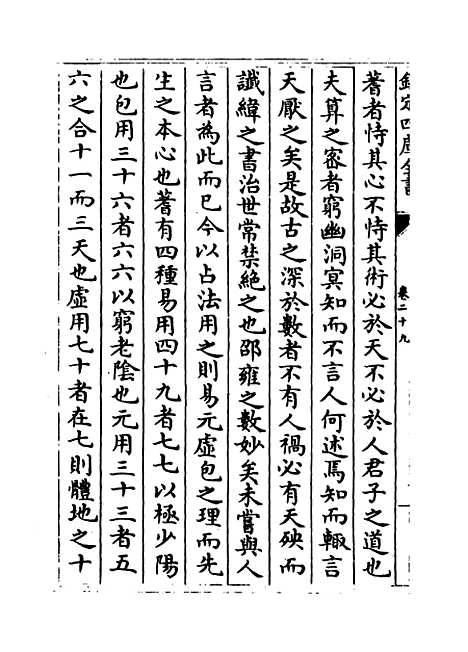 欽定四庫全書
卷二十九
蓍者恃其心不恃其術必於天不必於人君子之道也
夫算之密者窮幽洞冥知而不言人何述焉知而輙言
天厭之矣是故古之深於數者不有人禍必有天殃而
讖緯之書治世常禁絶之也邵雍之數妙矣未嘗與人
言者為此而已今以占法用之則易元虛包之理而先
生之本心也蓍有四種易用四十九者七七以極少陽
也包用三十六者六六以窮老陰也元用三十三者五
六之合十一而三天也虛用七十者在七則體地之十